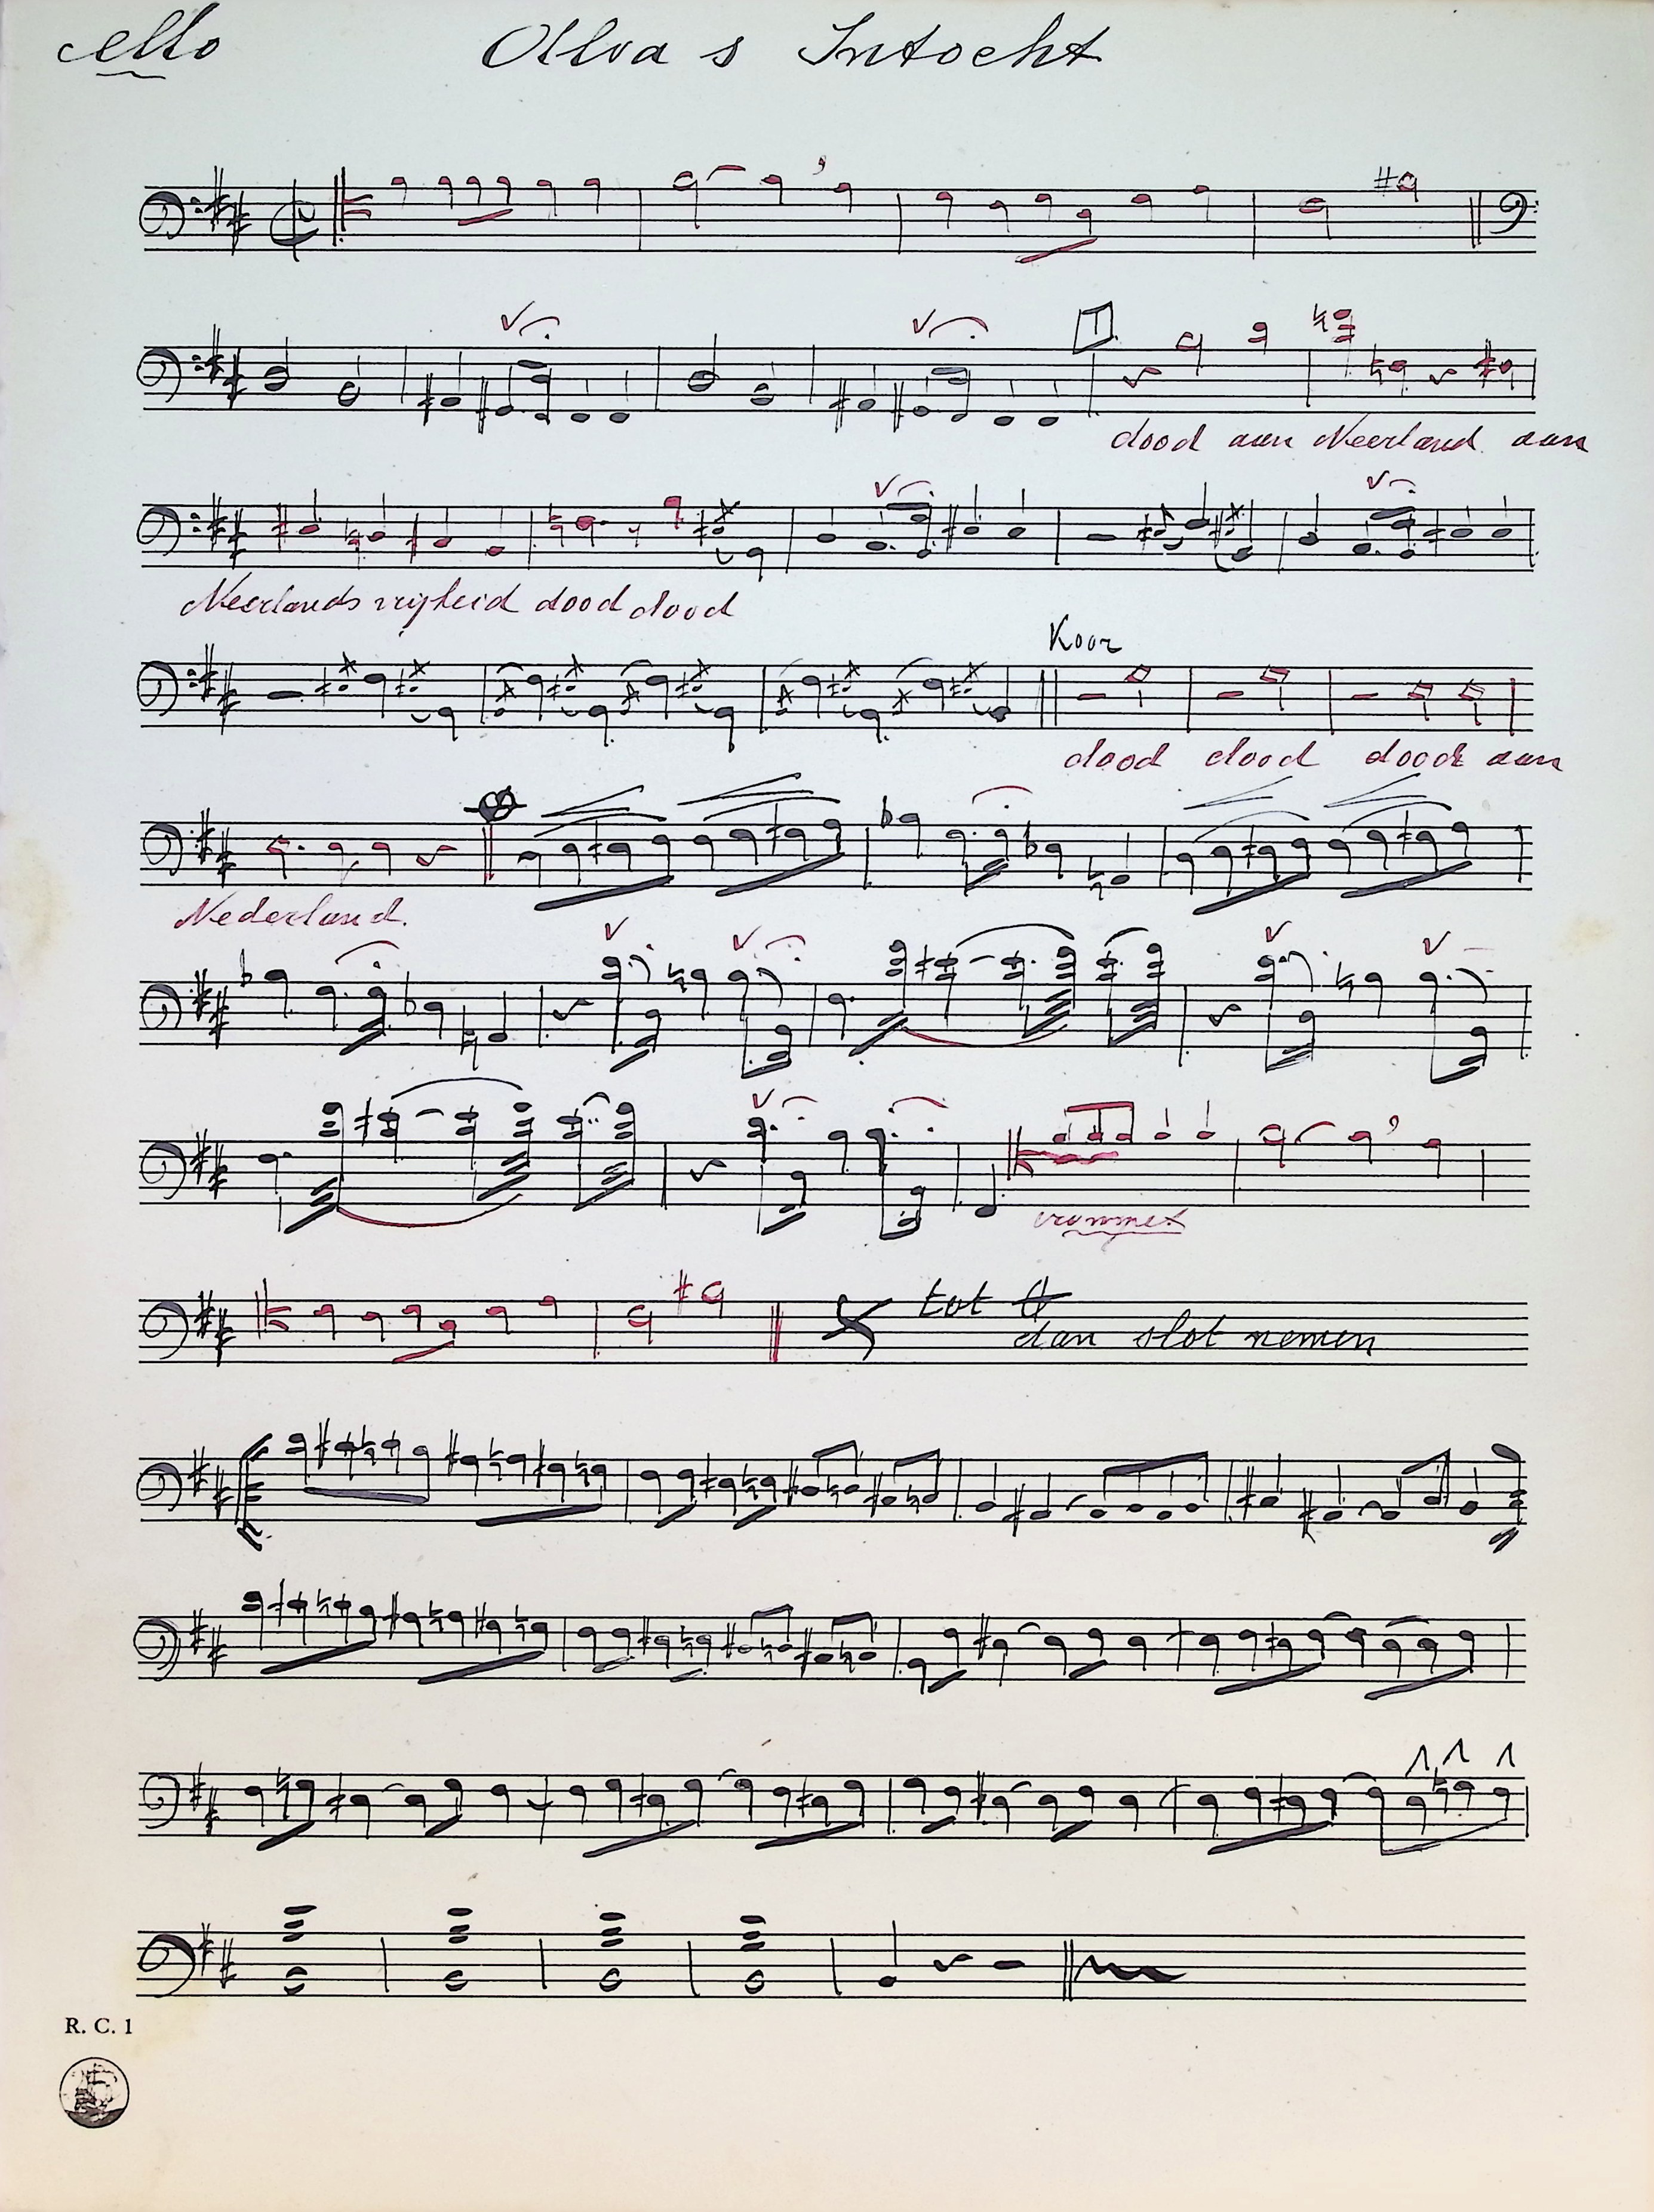 cello Alva s Intocht
dood aan Neerland aan
Neerlands vrijheid dood dood
Koor
dood dood dood aan
Nederland.
trommet
tot
dan slot nemen
R. C. 1